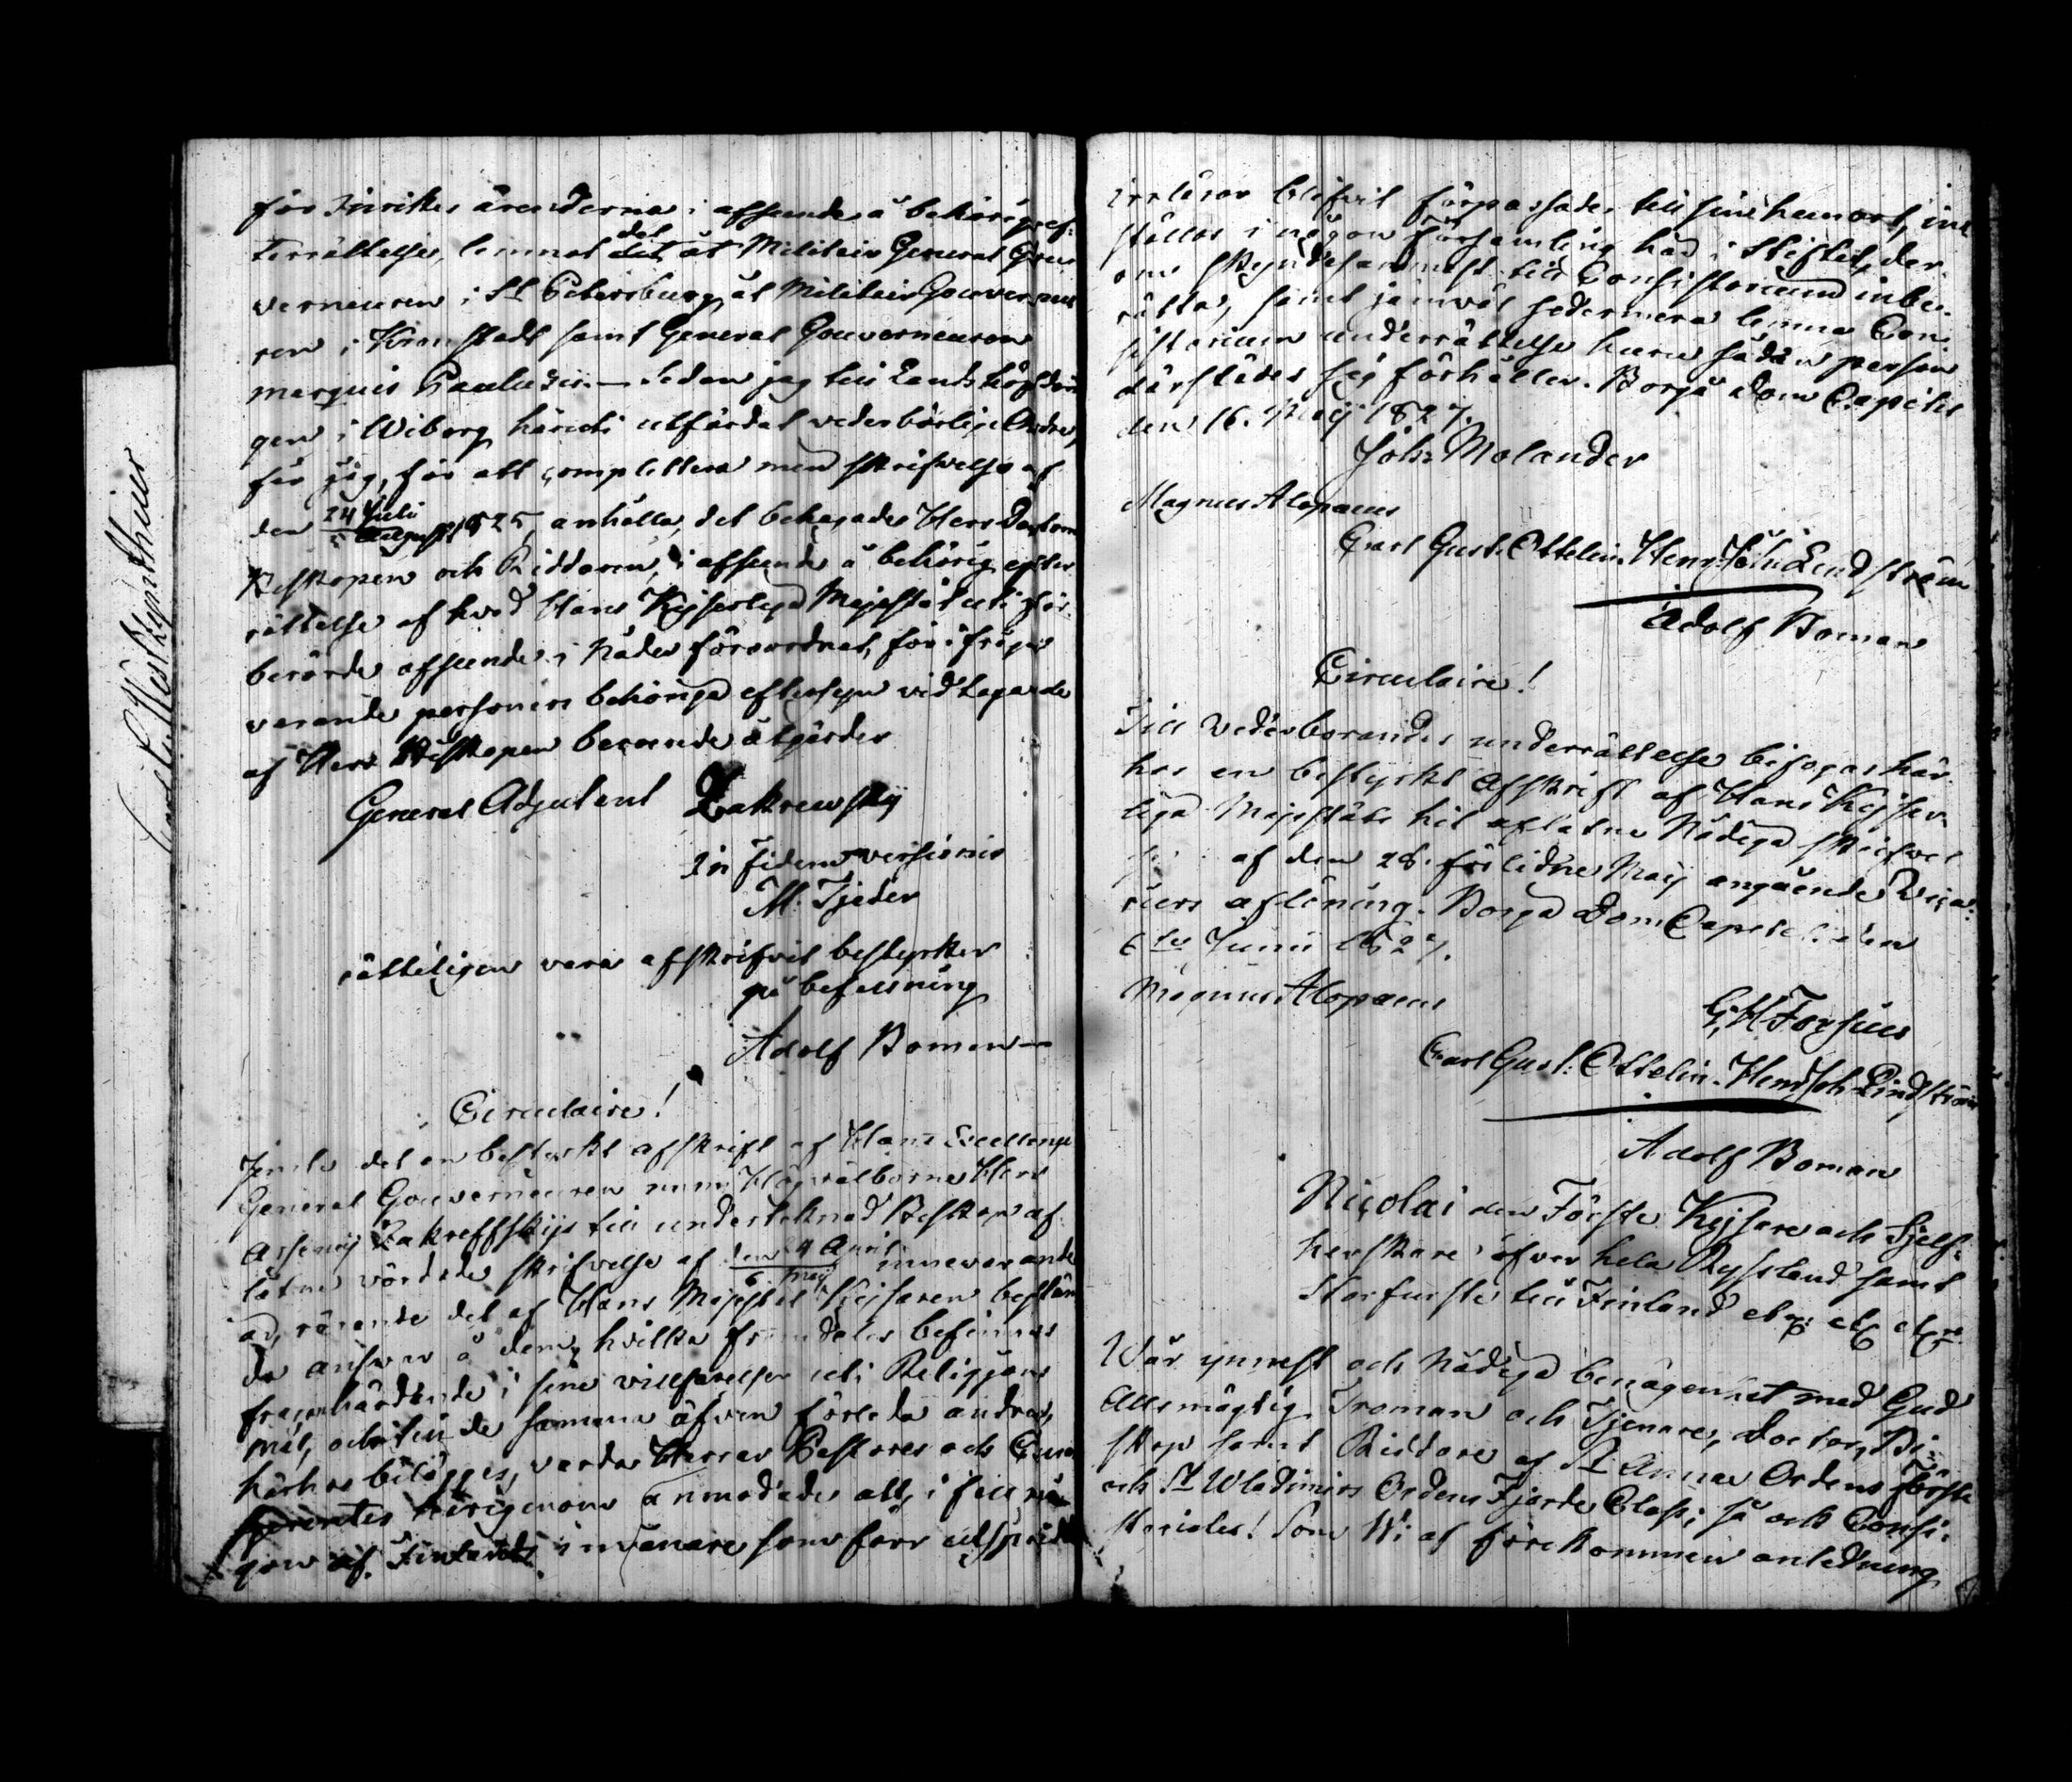 för Inrikes ärenderna i afseende å behörig ef-
terrättelse, lemnat det åt Militair General Gou-
verneuren i St Petersburg åt Militair Gouverneu
ren i Kronstadt samt General Gouverneuren
marquis Paulucci — Sedan jag till Landshöfdin
gen i Wiborg härom utfärdat vederbörlige Ordres,
får jag, för att complettera med skrifvelse af
den 24 Juli / Augusti 1825, anhålla, det behagade Herr Doctorn
Biskopen och Riddaren, i afseende å behörig efter
rättelse af hvad Hans Kejserliga Majestät uti för-
berörde afseende i Nåder förordnat, för ifråga
varande personers behöriga eftersyn vidtaga de
af Herr Biskopen beroende åtgärder
General Adjutant Zakrewskij
In fidem versionis
M. Tjeder
rätteligen vara afskrifvit bestyrker
på befallning
Adolf Boman —
Circulaire!
Jemte det en bestyrkt afskrift af Hans Excellence
General Gouverneuren m.m. Högvälborne Herr
Arsenij Zakreffskijs till undertecknad Biskop af-
låtne vördade skrifvelse af den 24 April / 6 Maij innevarande
år, rörande det af Hans Majestät Kejsaren bestäm
da answar å dem, hvilka framdeles befinnas
framhärdande i sine villfarelser uti Religions
mål, och till de samma äfven förleda andra,
härhos bilägges, varda Herrar Pastores och Cura
Gerentes härigenom anmodade att, i fall nå-
gon af Finlands invånare som förr utspridt
irrläror blifvit förpassade, till sin hemort, in-
ställer i någon församling här i Stiftet, der-
om skyndesammast till Consistorium inbe-
rätta, samt jemväl sedermera lemna Con-
sistorium underrättelse huru sådan person
därstädes sig förhåller. Borgå Dom Capitel
den 16. Maij 1827.
Joh: Molander
Magnus Alopaeus
Carl Gust. Ottelin. Henr: Joh: Lindström
Adolf Boman
Circulaire!
Till Vederbörandes underrättelse bifogas här
hos en bestyrkt afskrift af Hans Kejser-
liga Majestäts hit aflåtne Nådiga skrifvel
se af den 28. förlidne Maij angående Vica-
riers aflöning. Borgå Dom Capitel den
6te Junii 1827.
Magnus Alopaeus
G. H. Forsius
Carl Gust: Ottelin. Henr: Joh: Lindström
Adolf Boman
Nicolai den Förste Kejsare och Sjelf-
herskare öfver hela Ryssland samt
Storfurste till Finland etc: etc etc
Wår ynnest och Nådiga benägenhet med Gud
Allsmägtig Troman och Tjenare, Doctor, Bi-
skop samt Riddare af St Annae Ordens Förste
och St Wladimirs Ordens Fjerde Class; så och Consi-
storiales! Som Wi af förekommen anledning